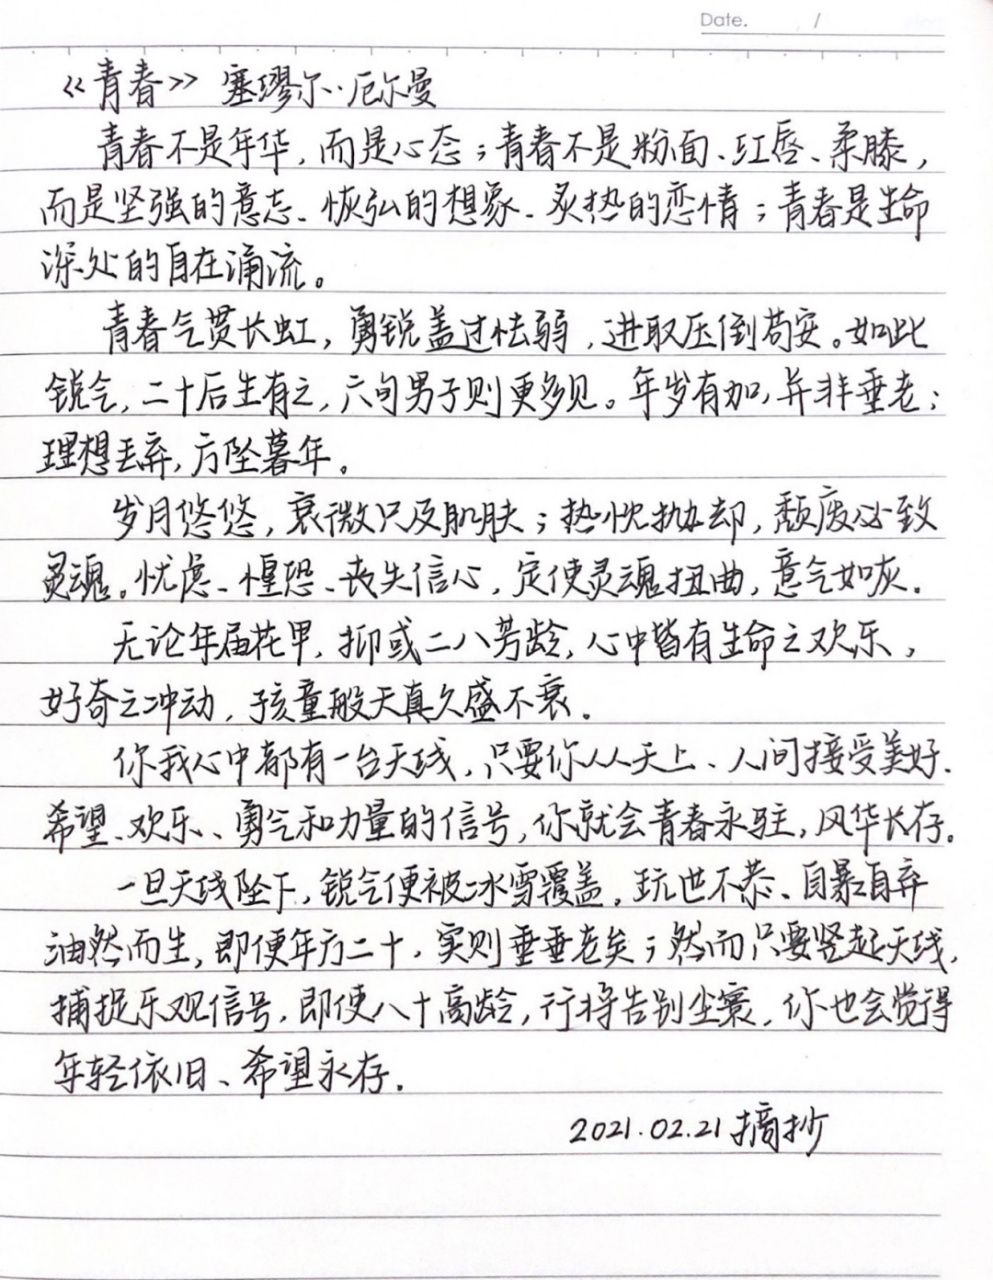 Date. /
《青春》 塞缪尔·厄尔曼
青春不是年华，而是心态；青春不是粉面、红唇、柔膝，
而是坚强的意志、恢弘的想象、炙热的恋情；青春是生命
深处的自在涌流。
青春气贯长虹，勇锐盖过怯弱，进取压倒苟安。如此
锐气，二十后生有之，六旬男子则更多见。年岁有加，并非垂老；
理想丢弃，方坠暮年。
岁月悠悠，衰微只及肌肤；热忱抛却，颓废必致
灵魂。忧虑、惶恐、丧失信心，定使灵魂扭曲，意气如灰。
无论年届花甲，抑或二八芳龄，心中皆有生命之欢乐，
好奇之冲动，孩童般天真久盛不衰。
你我心中都有一台天线，只要你从天上、人间接受美好、
希望、欢乐、勇气和力量的信号，你就会青春永驻，风华长存。
一旦天线坠下，锐气便被冰雪覆盖，玩世不恭、自暴自弃
油然而生，即便年方二十，实则垂垂老矣；然而只要竖起天线，
捕捉乐观信号，即使八十高龄，行将告别尘寰，你也会觉得
年轻依旧、希望永存。
2021.02.21 摘抄